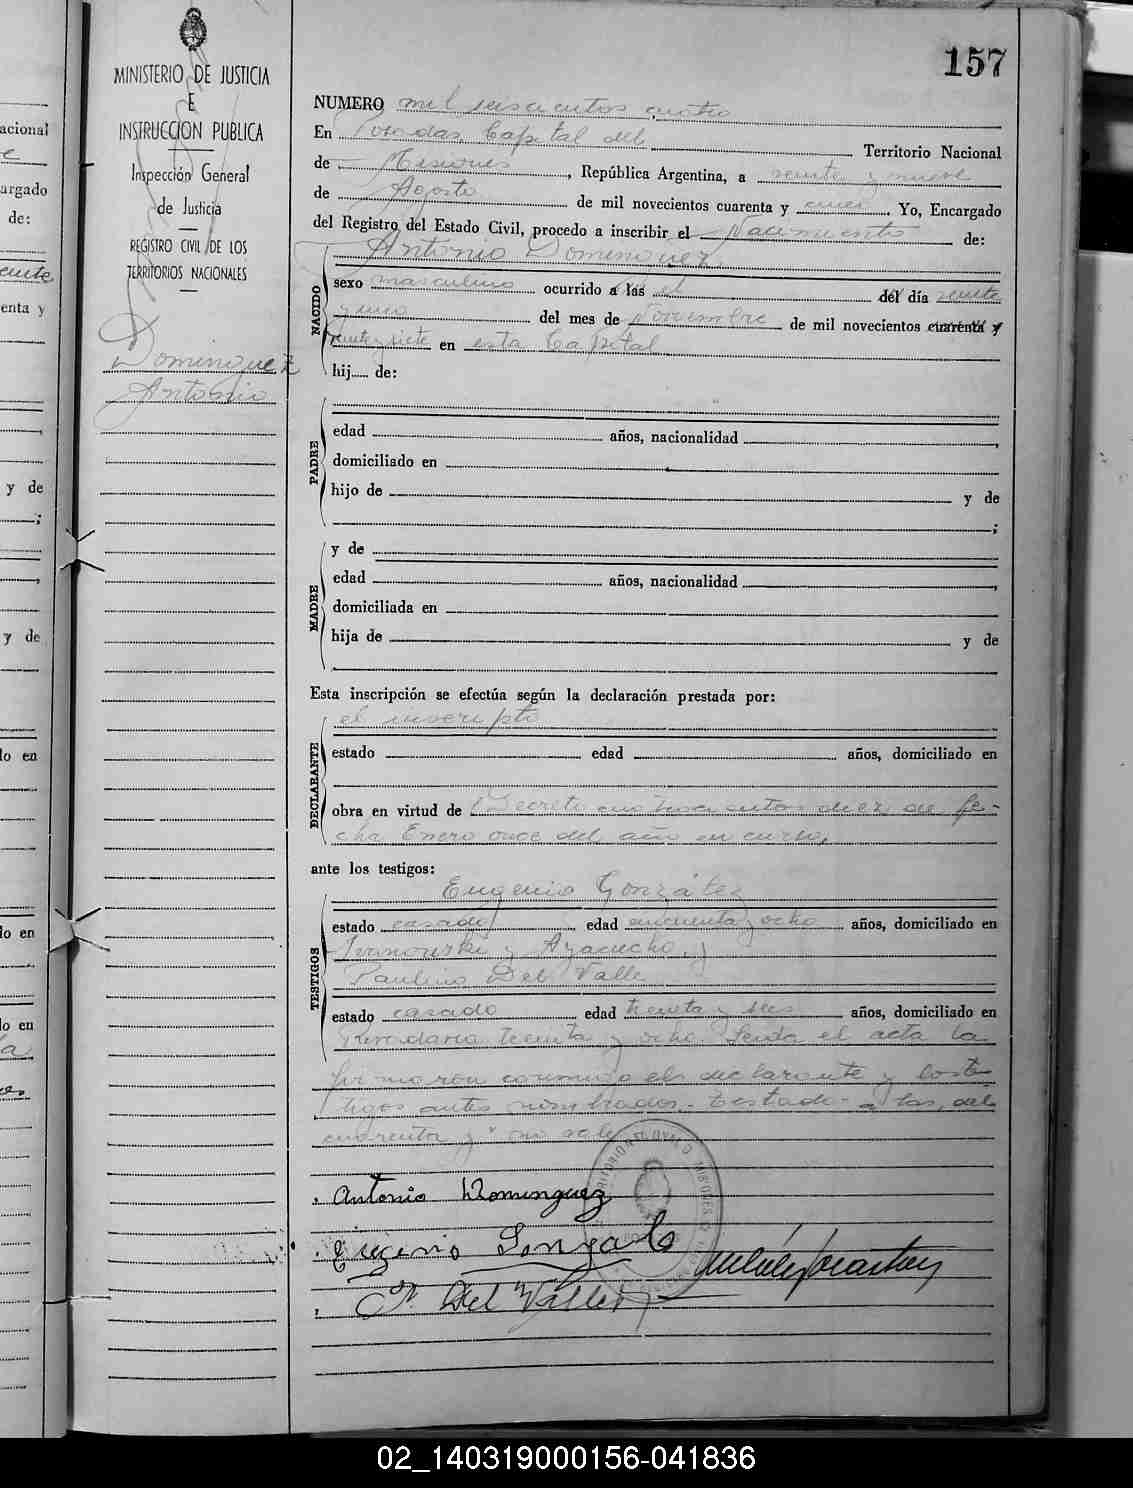 157
MINISTERIO DE JUSTICIA
E
INSTRUCCION PUBLICA
Inspección General
de Justicia
REGISTRO CIVIL DE LOS
TERRITORIOS NACIONALES
Dominguez
Antonio
NUMERO mil seiscientos cuatro
En Posadas Capital del Territorio Nacional
de Misiones, República Argentina, a veinte y nueve
de Agosto de mil novecientos cuarenta y cinco. Yo, Encargado
del Registro del Estado Civil, procedo a inscribir el Nacimiento de:
Antonio Dominguez
NACIDO
sexo masculino ocurrido a las el del día veinte
y uno del mes de Noviembre de mil novecientos cuarenta y
veinte y siete en esta Capital
hij..... de:
PADRE
edad años, nacionalidad
domiciliado en
hijo de y de
;
MADRE
y de
edad años, nacionalidad
domiciliada en
hija de y de
Esta inscripción se efectúa según la declaración prestada por:
el inscripto
DECLARANTE
estado edad años, domiciliado en
obra en virtud de Decreto cuatrocientos diez de fe-
cha Enero once del año en curso,
ante los testigos:
Eugenio González
TESTIGOS
estado casado edad cincuenta y ocho años, domiciliado en
y Ayacucho y
Paulino Del Valle
estado casado edad treinta y seis años, domiciliado en
Rivadavia treinta y ocho. Leida el acta la
firmaron conmigo el declarante y los tes
tigos antes nombrados.- Testado- a las, del
cuarenta y" no vale
Antonio Dominguez
Eugenio Gonzalez
P. Del Valle
acional
argado
de:
enta y
y de
;
y de
do en
lo en
lo en
02_140319000156-041836